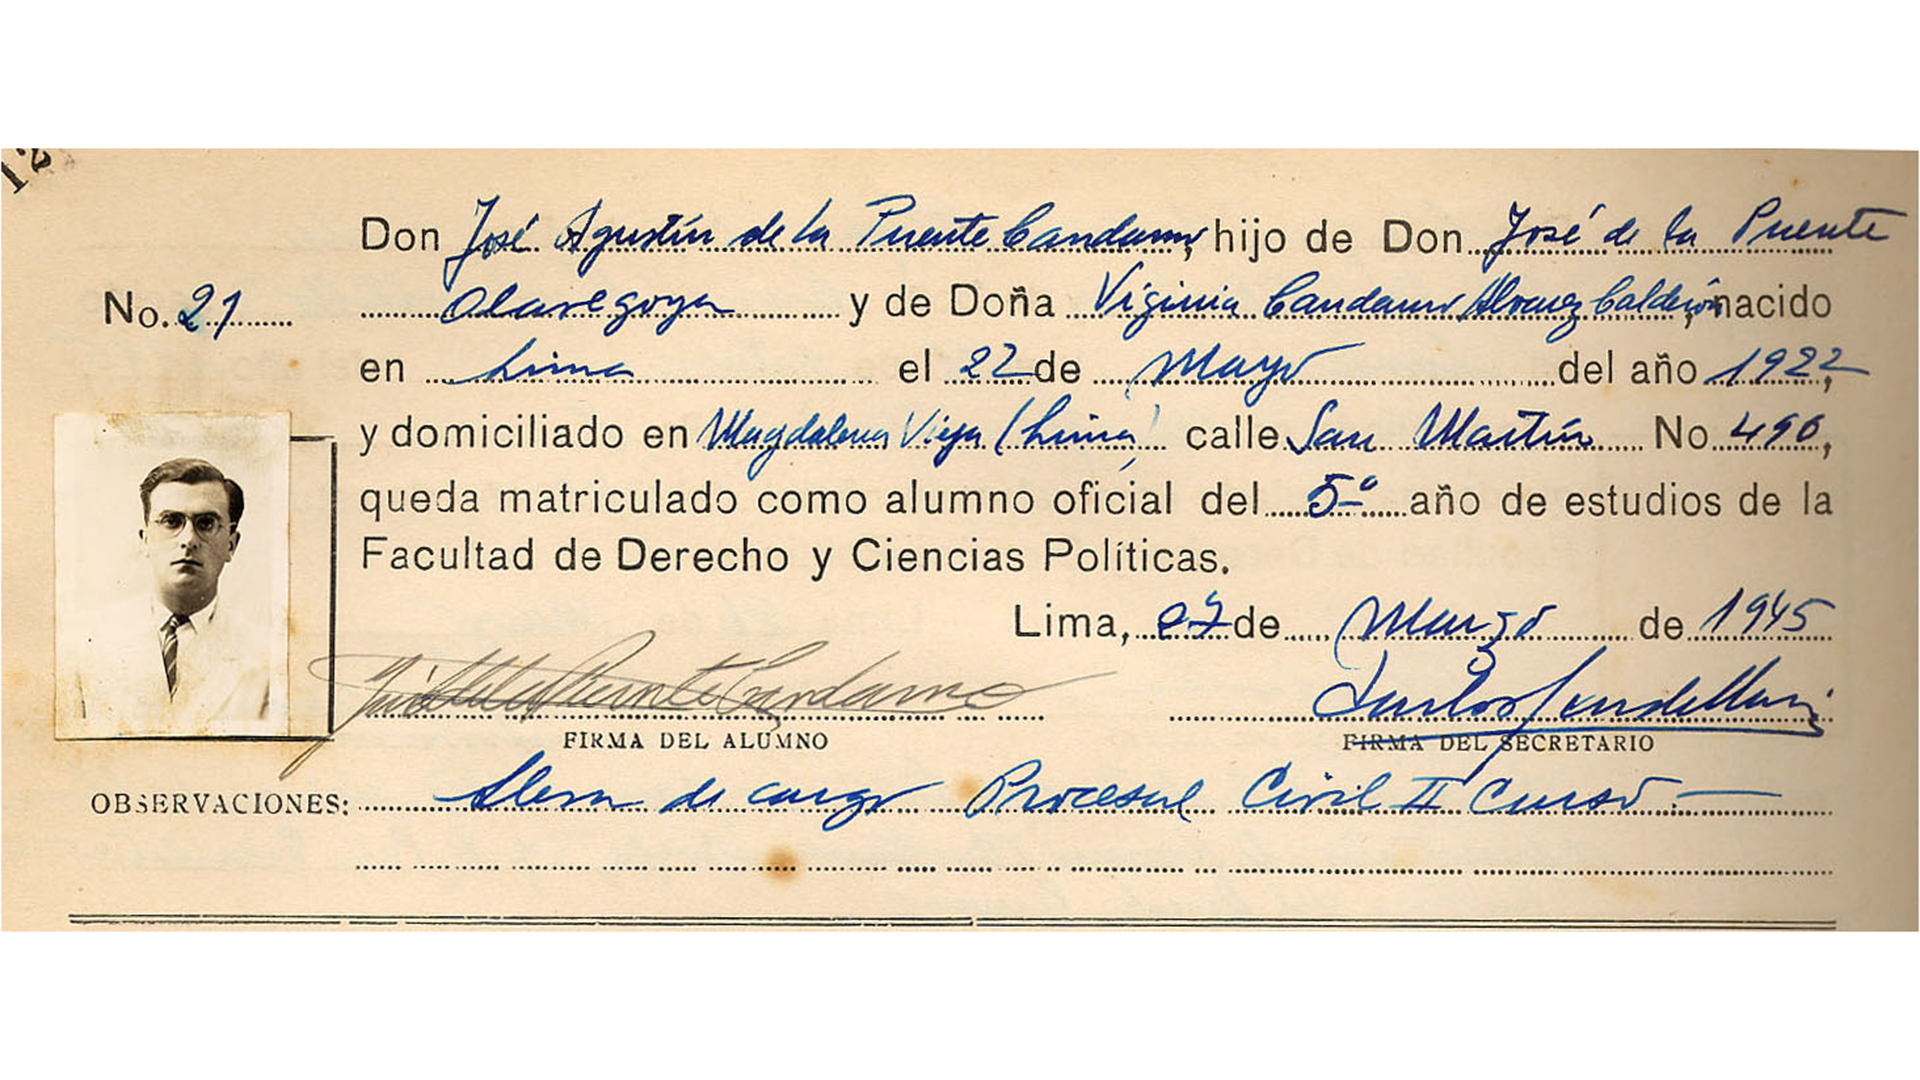 12
Don José Agustín de la Puente Candamo, hijo de Don José de la Puente
No. 21 Olavegoya y de Doña Virginia Candamo Alvarez Calderón, nacido
en Lima el 22 de Mayo del año 1922,
y domiciliado en Magdalena Vieja (Lima) calle San Martín No 490,
queda matriculado como alumno oficial del 5º año de estudios de la
Facultad de Derecho y Ciencias Políticas.
Lima, 27 de Marzo de 1945
Puente Candamo
FIRMA DEL ALUMNO FIRMA DEL SECRETARIO
OBSERVACIONES: Lleva de cargo Procesal Civil II Curso.—